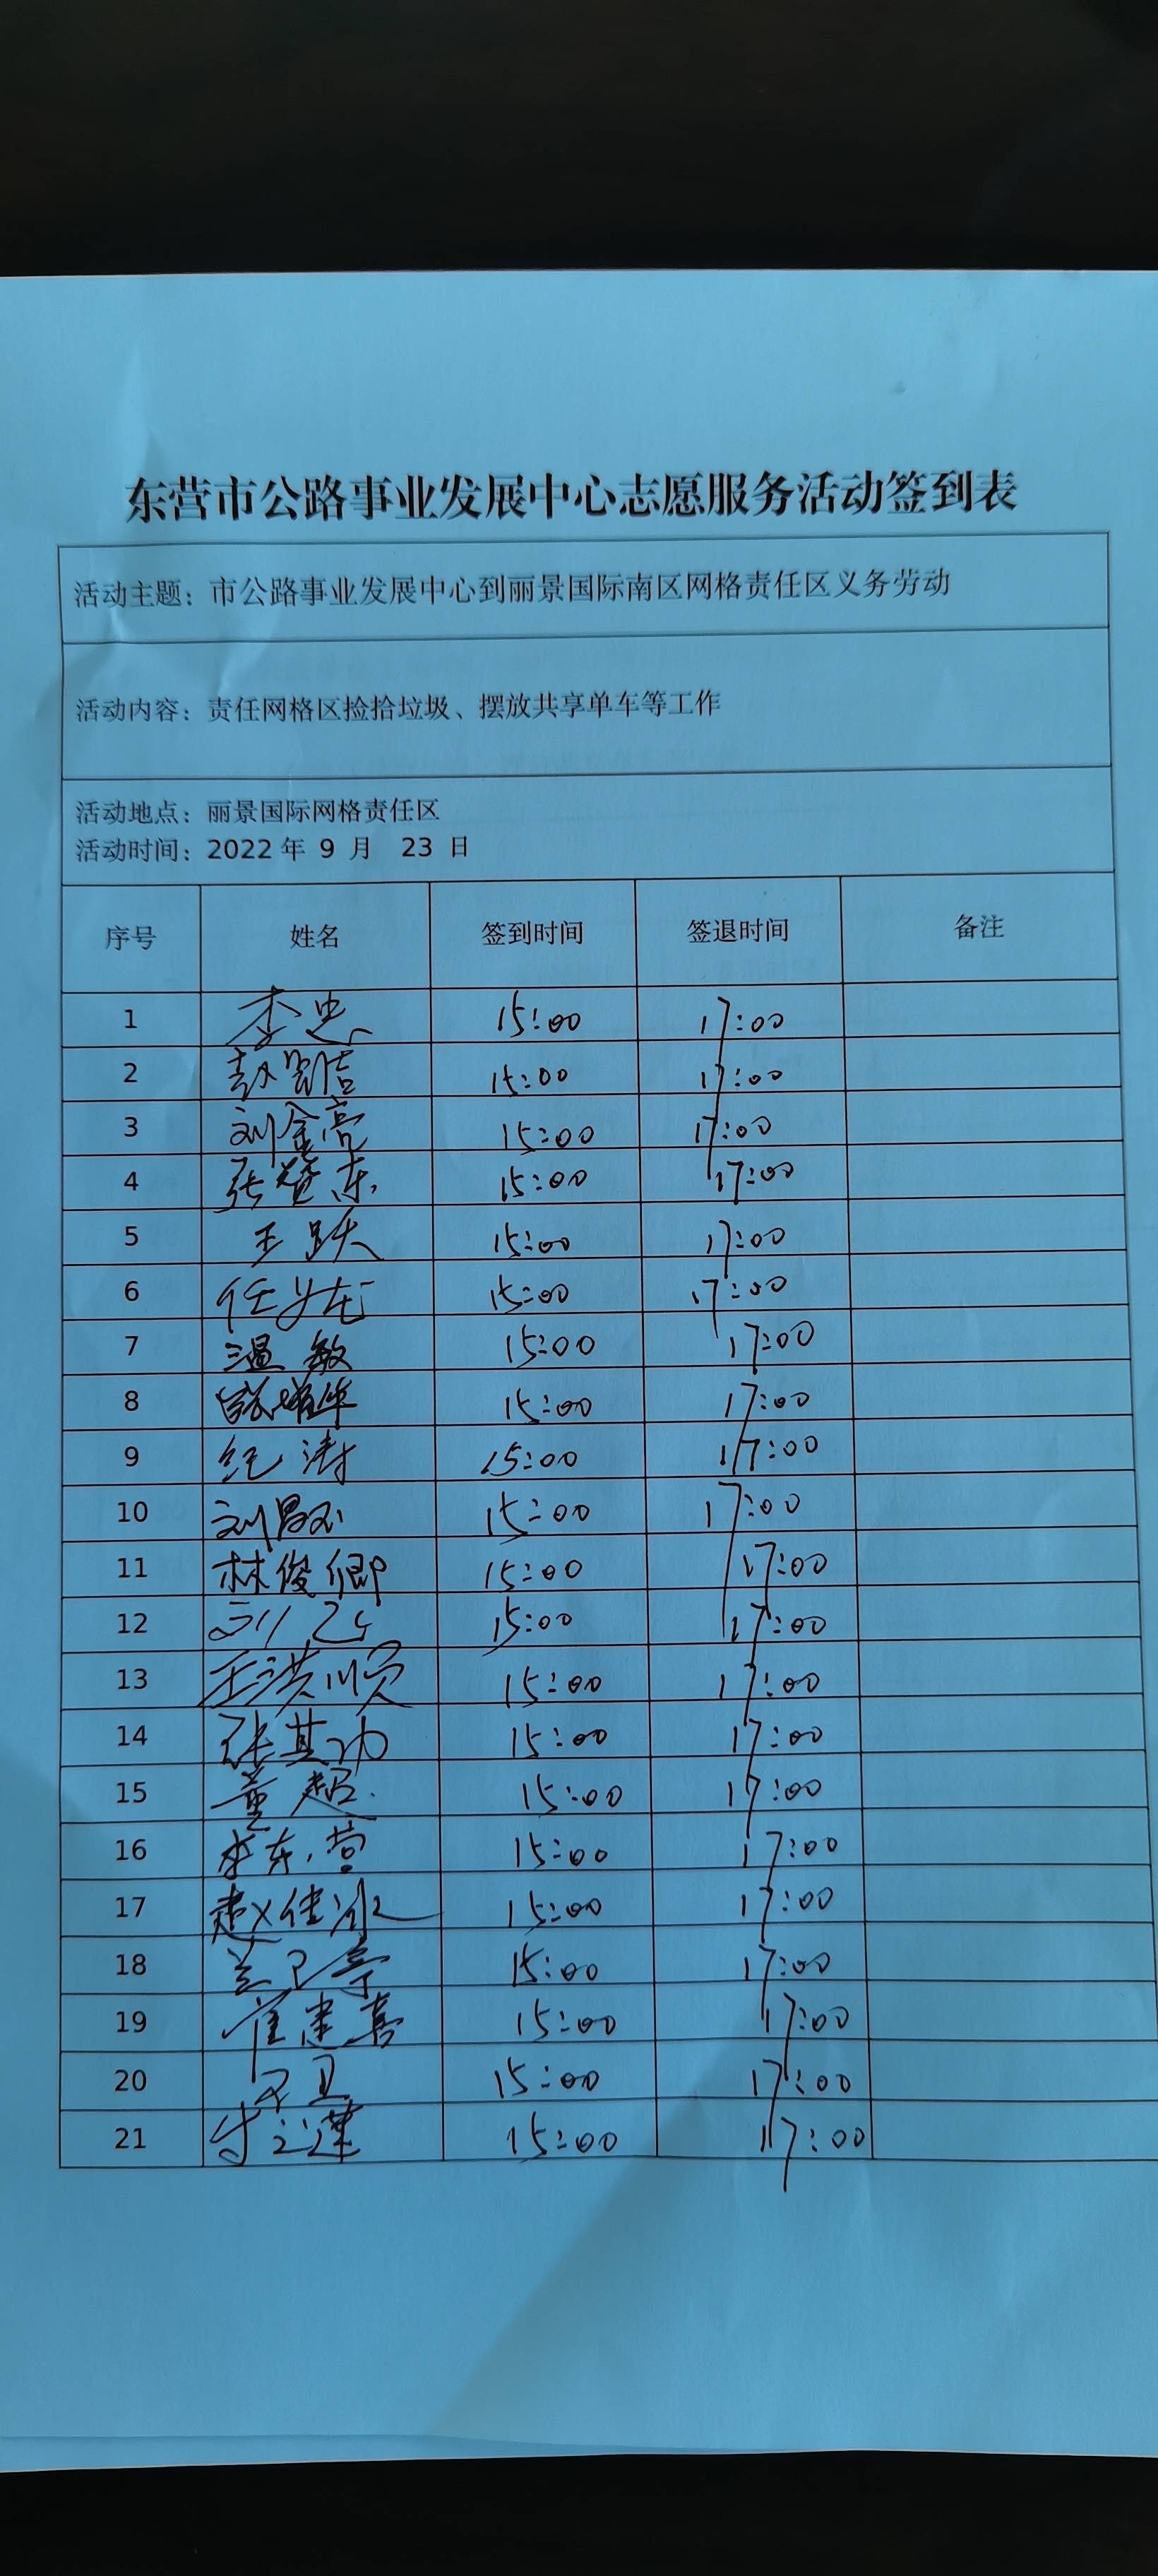 东营市公路事业发展中心志愿服务活动签到表
活动主题：市公路事业发展中心到丽景国际南区网格责任区义务劳动
活动内容：责任网格区捡拾垃圾、摆放共享单车等工作
活动地点：丽景国际网格责任区
活动时间：2022 年 9 月 23 日
序号 姓名 签到时间 签退时间 备注
1 李忠 15:00 17:00
2 15:00 17:00
3 刘金亮 15:00 17:00
4 张 东 15:00 17:00
5 王跃 15:00 17:00
6 任 龙 15:00 17:00
7 温敏 15:00 17:00
8 15:00 17:00
9 纪涛 15:00 17:00
10 刘 15:00 17:00
11 林俊卿 15:00 17:00
12 15:00 17:00
13 王洪顺 15:00 17:00
14 张其功 15:00 17:00
15 董超 15:00 17:00
16 李东营 15:00 17:00
17 赵佳冰 15:00 17:00
18 15:00 17:00
19 崔建喜 15:00 17:00
20 15:00 17:00
21 15:00 17:00